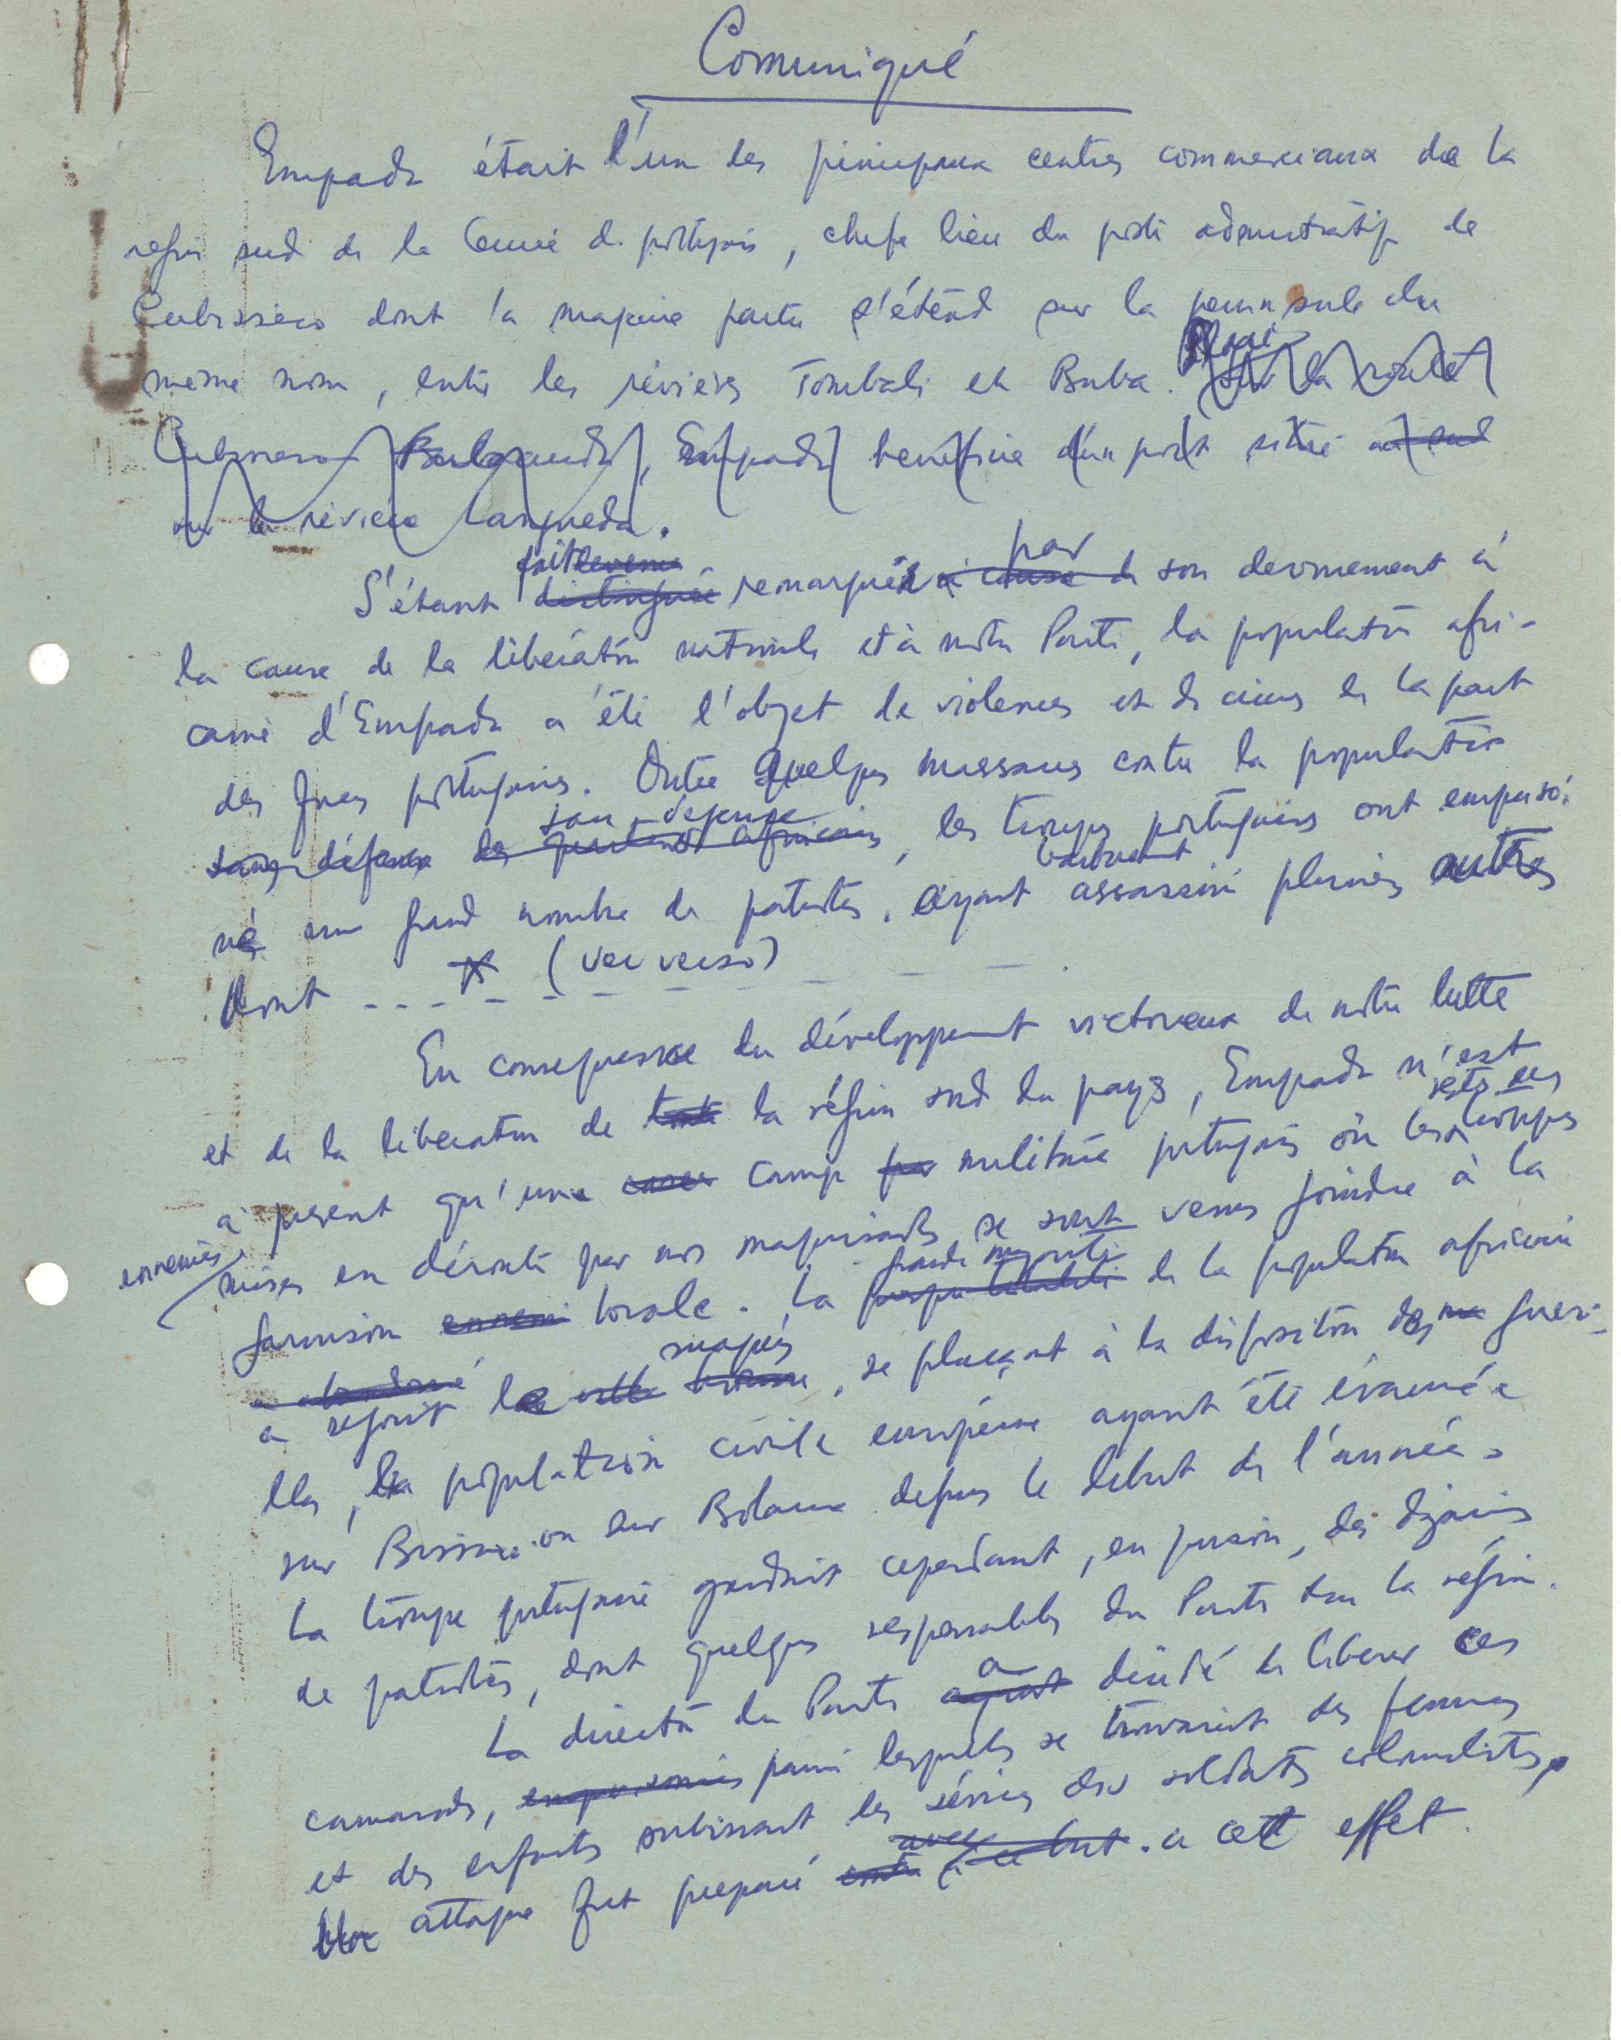 Comuniqué
Empada était l'un des principaux centres commerciaux de la
region sud de la Guinée dite portugaise, chefe lieu du poste administratif de
Cubisseco dont la majeure partie s'étend sur la peninsule du
même nom, entre les rivières Tombali et Buba. Sur la route
Cubisseco Empada beneficie d'un port situé au sud
sur la rivière
S'étant fait distinguée remarquée à cause par de son devouement à
la cause de la libération nationale et à notre Parti, la population afri-
caine d'Empada a été l'objet de violences et de crimes de la part
des forces portugaises. Outre quelques massacres contre la population
sans défense des quartiers africains sans defense, les troupes portugaises ont emprison-
né un grand nombre de patriotes, ayant assassiné plusieurs autres
dont - - - X (ver verso) - - -
En consequence du développement victorieux de notre lutte
et de la liberation de toute la région sud du pays, Empada n'est
à present qu'une camp militaire portugais où les troupes
ennemies
mises en déroute par nos maquisards se sont venues joindre à la
garnison ennemie locale. La presque totalité grande majorité de la population africaine
a abandonné a rejoint le ville maquis, se plaçant à la disposition des guerril-
llas, la population civile européenne ayant été évacuée
sur Bissau ou sur Bolama depuis le debut de l'année.
La troupe portugaise gardait cependant, en prison, des dizaines
de patriotes, dont quelques responsables du Parti dans la région.
La direction du Parti ayant a decidé de liberer ces
camarades, emprisonnés parmi lesquels se trouvaient des femmes
et des enfants subissant les sévices des soldats colonialistes.
Une attaque fut preparé avec ce but. a cett effet.